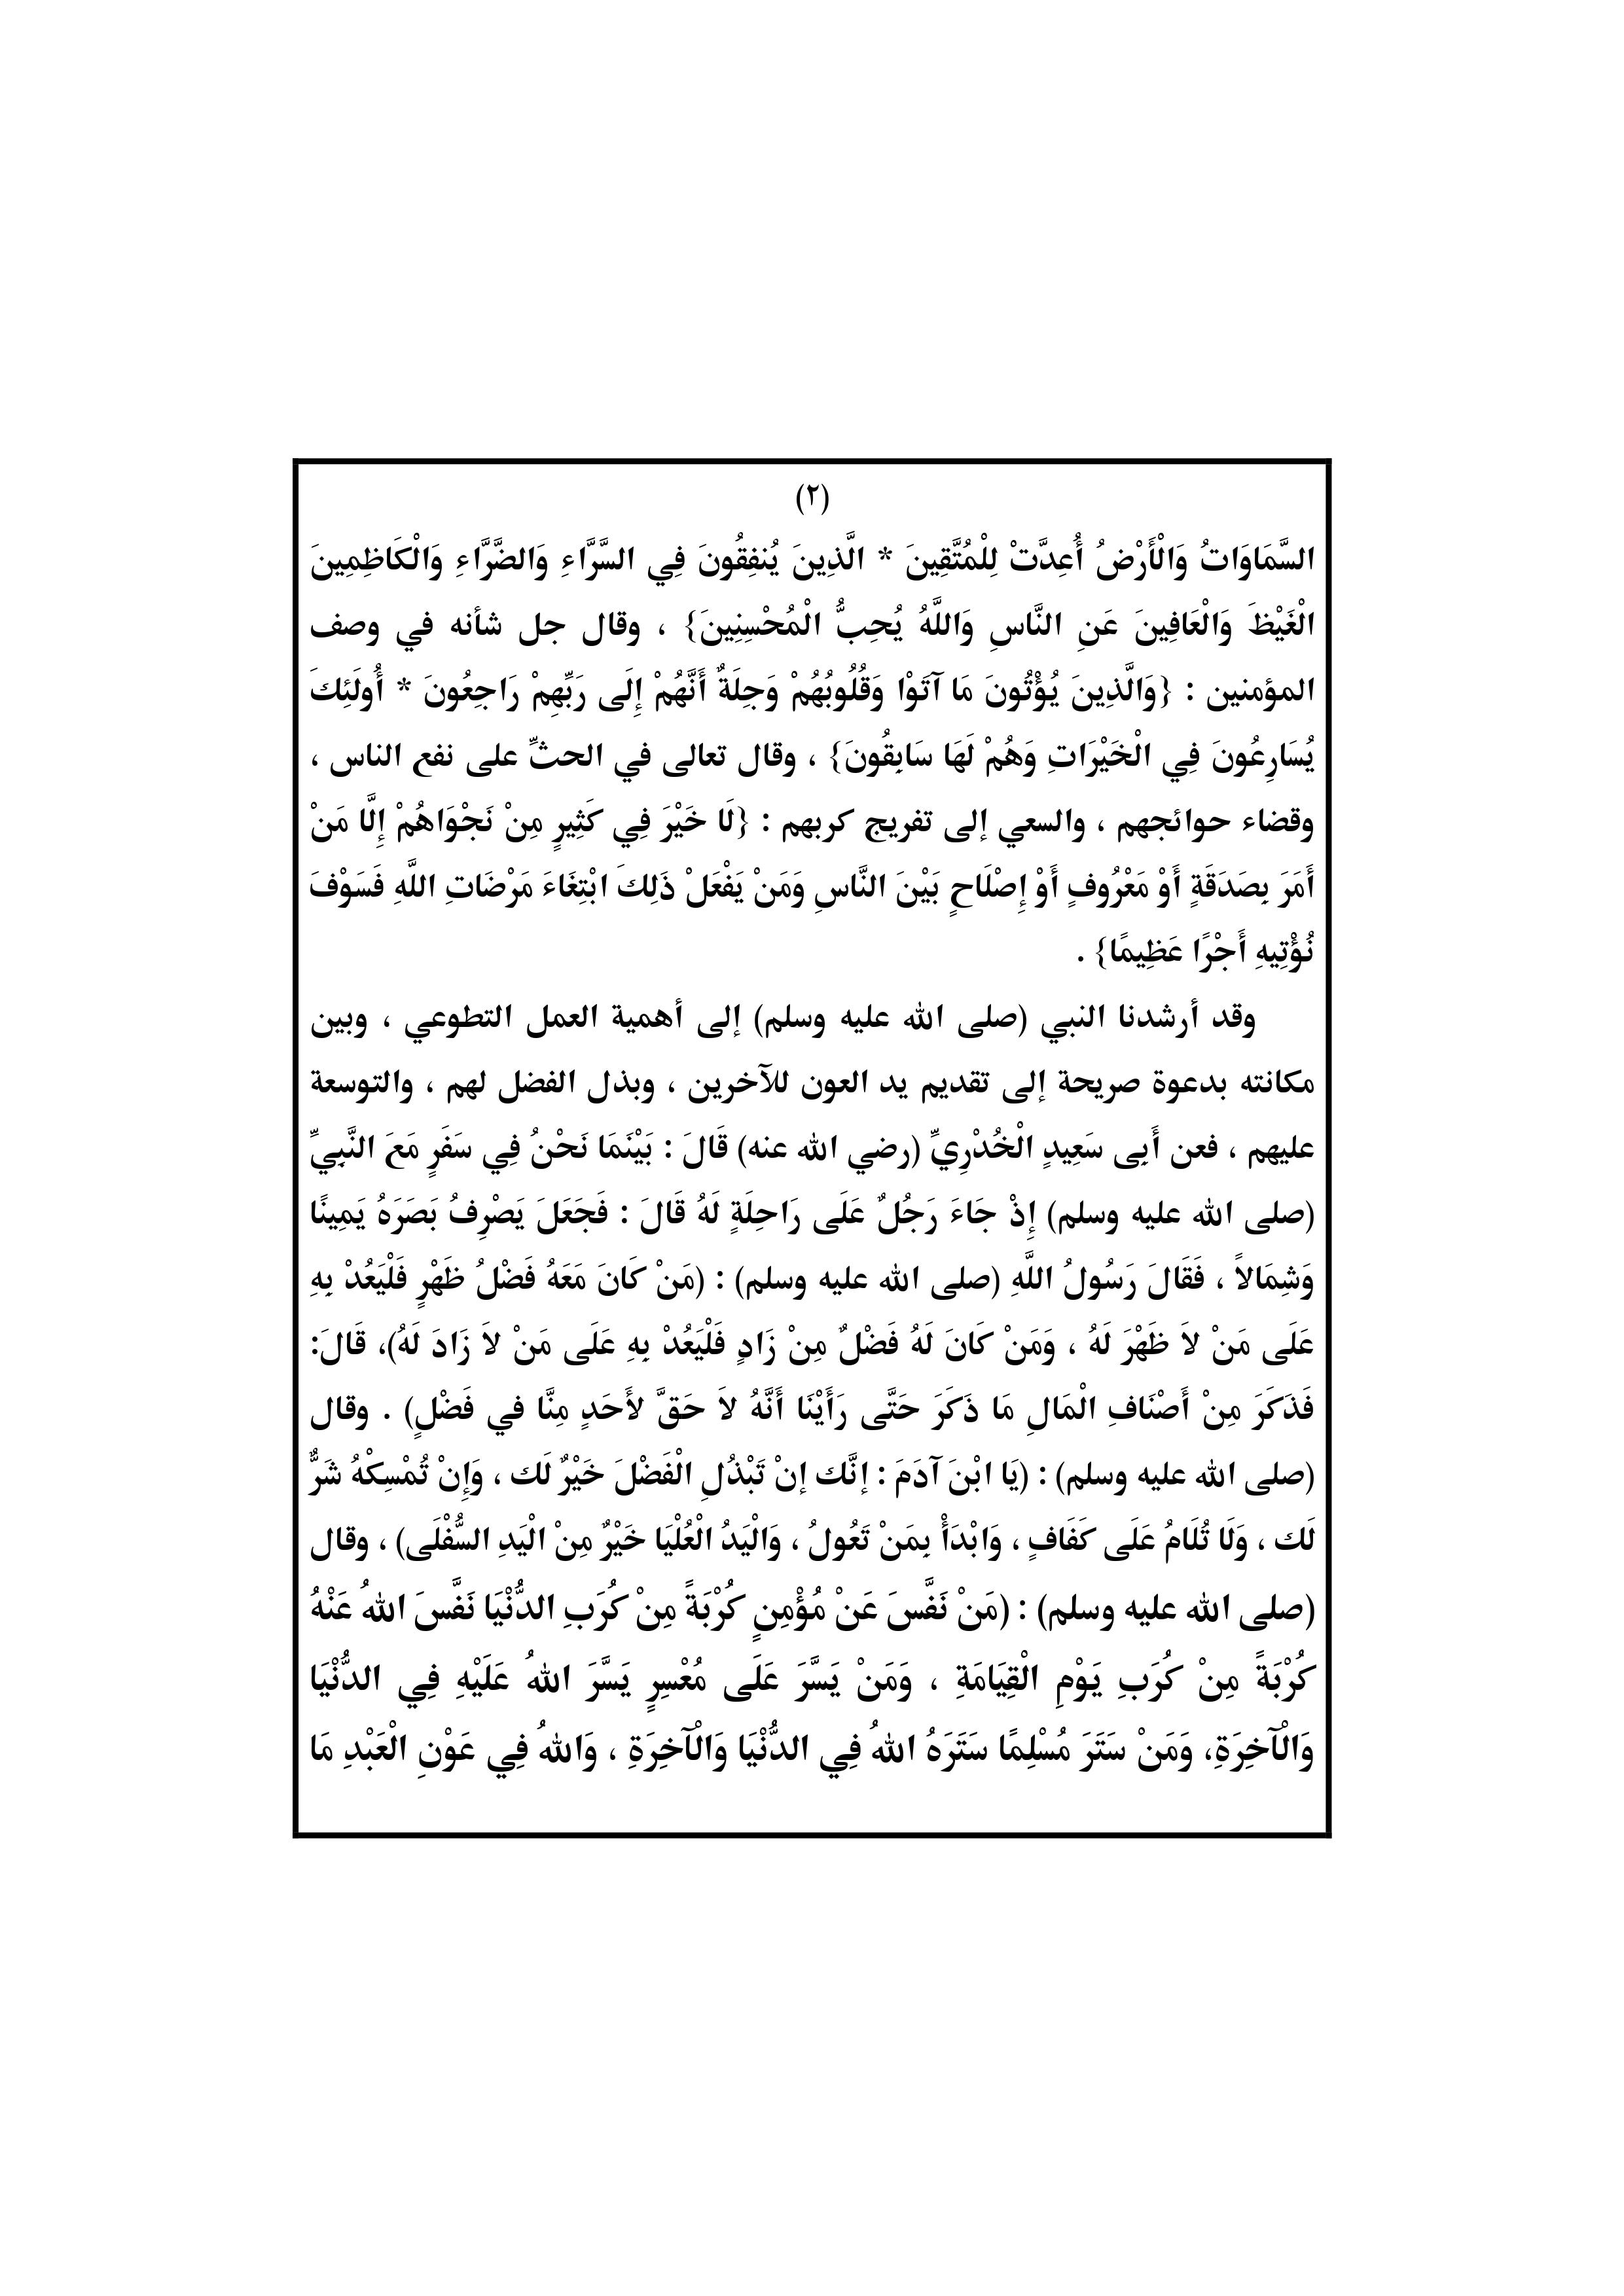 (٢)
السَّمَاوَاتُ وَالْأَرْضُ أُعِدَّتْ لِلْمُتَّقِينَ * الَّذِينَ يُنفِقُونَ فِي السَّرَّاءِ وَالضَّرَّاءِ وَالْكَاظِمِينَ
الْغَيْظَ وَالْعَافِينَ عَنِ النَّاسِ وَاللَّهُ يُحِبُّ الْمُحْسِنِينَ} ، وقال جل شأنه في وصف
المؤمنين : {وَالَّذِينَ يُؤْتُونَ مَا آتَوْا وَقُلُوبُهُمْ وَجِلَةٌ أَنَّهُمْ إِلَى رَبِّهِمْ رَاجِعُونَ * أُولَئِكَ
يُسَارِعُونَ فِي الْخَيْرَاتِ وَهُمْ لَهَا سَابِقُونَ} ، وقال تعالى في الحثِّ على نفع الناس ،
وقضاء حوائجهم ، والسعي إلى تفريج كربهم : {لَا خَيْرَ فِي كَثِيرٍ مِنْ نَجْوَاهُمْ إِلَّا مَنْ
أَمَرَ بِصَدَقَةٍ أَوْ مَعْرُوفٍ أَوْ إِصْلَاحٍ بَيْنَ النَّاسِ وَمَنْ يَفْعَلْ ذَلِكَ ابْتِغَاءَ مَرْضَاتِ اللَّهِ فَسَوْفَ
نُؤْتِيهِ أَجْرًا عَظِيمًا} .
وقد أرشدنا النبي (صلى الله عليه وسلم) إلى أهمية العمل التطوعي ، وبين
مكانته بدعوة صريحة إلى تقديم يد العون للآخرين ، وبذل الفضل لهم ، والتوسعة
عليهم ، فعن أَبِى سَعِيدٍ الْخُدْرِيِّ (رضي الله عنه) قَالَ : بَيْنَمَا نَحْنُ فِي سَفَرٍ مَعَ النَّبِيِّ
(صلى الله عليه وسلم) إِذْ جَاءَ رَجُلٌ عَلَى رَاحِلَةٍ لَهُ قَالَ : فَجَعَلَ يَصْرِفُ بَصَرَهُ يَمِينًا
وَشِمَالاً ، فَقَالَ رَسُولُ اللَّهِ (صلى الله عليه وسلم) : (مَنْ كَانَ مَعَهُ فَضْلُ ظَهْرٍ فَلْيَعُدْ بِهِ
عَلَى مَنْ لاَ ظَهْرَ لَهُ ، وَمَنْ كَانَ لَهُ فَضْلٌ مِنْ زَادٍ فَلْيَعُدْ بِهِ عَلَى مَنْ لاَ زَادَ لَهُ)، قَالَ:
فَذَكَرَ مِنْ أَصْنَافِ الْمَالِ مَا ذَكَرَ حَتَّى رَأَيْنَا أَنَّهُ لاَ حَقَّ لأَحَدٍ مِنَّا في فَضْلٍ) . وقال
(صلى الله عليه وسلم) : (يَا ابْنَ آدَمَ : إنَّك إنْ تَبْذُلِ الْفَضْلَ خَيْرٌ لَك ، وَإِنْ تُمْسِكْهُ شَرٌّ
لَك ، وَلَا تُلَامُ عَلَى كَفَافٍ ، وَابْدَأْ بِمَنْ تَعُولُ ، وَالْيَدُ الْعُلْيَا خَيْرٌ مِنْ الْيَدِ السُّفْلَى) ، وقال
(صلى الله عليه وسلم) : (مَنْ نَفَّسَ عَنْ مُؤْمِنٍ كُرْبَةً مِنْ كُرَبِ الدُّنْيَا نَفَّسَ اللهُ عَنْهُ
كُرْبَةً مِنْ كُرَبِ يَوْمِ الْقِيَامَةِ ، وَمَنْ يَسَّرَ عَلَى مُعْسِرٍ يَسَّرَ اللهُ عَلَيْهِ فِي الدُّنْيَا
وَالْآخِرَةِ، وَمَنْ سَتَرَ مُسْلِمًا سَتَرَهُ اللهُ فِي الدُّنْيَا وَالْآخِرَةِ ، وَاللهُ فِي عَوْنِ الْعَبْدِ مَا